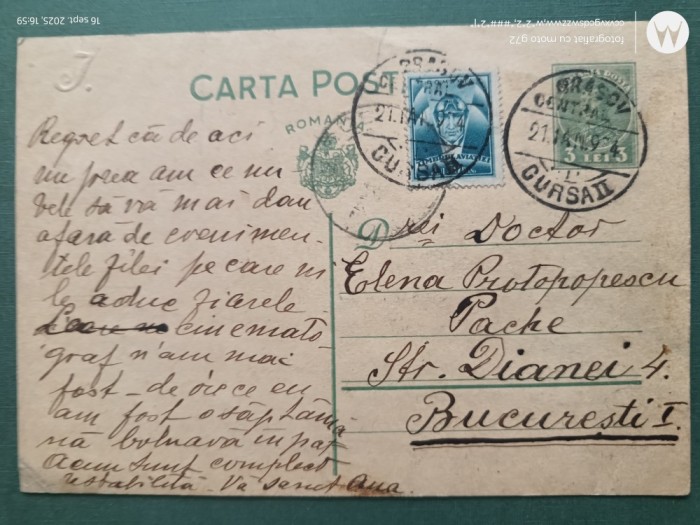 16 sept. 2025, 16:59
fotografiat cu moto g72
J.
CARTA POST
ROMAN
BRAȘOV
21.IAN.934
CURSA II
BRAȘOV
CENTRAL
21.IAN.934
CURSA II
3 LEI 3
Regret că de aci
nu prea am ce nu
vele să vă mai dau
afară de evenimen-
tele zilei pe care ni
le aduc ziarele.
cinemato-
graf n'am mai
fost - de oarece eu
am fost o săptămâ
nă bolnavă în pat
acum sunt complect
restabilită - Vă sărut Ana.
D rei Doctor
Elena Protopopescu
Pache
Str. Dianei 4.
București I.